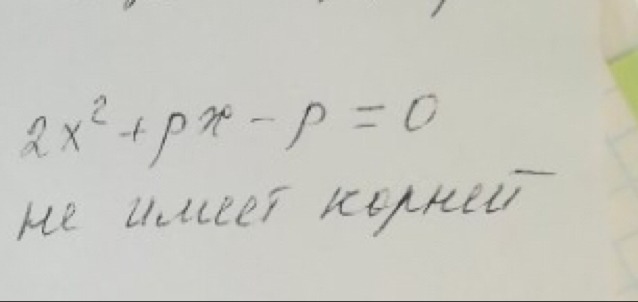 2x² + px - p = 0
не имеет корней